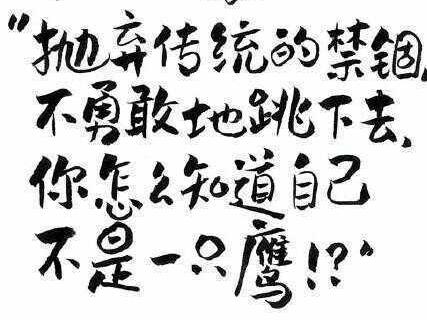 "抛弃传统的禁锢,
不勇敢地跳下去,
你怎么知道自己
不是一只鹰!?"